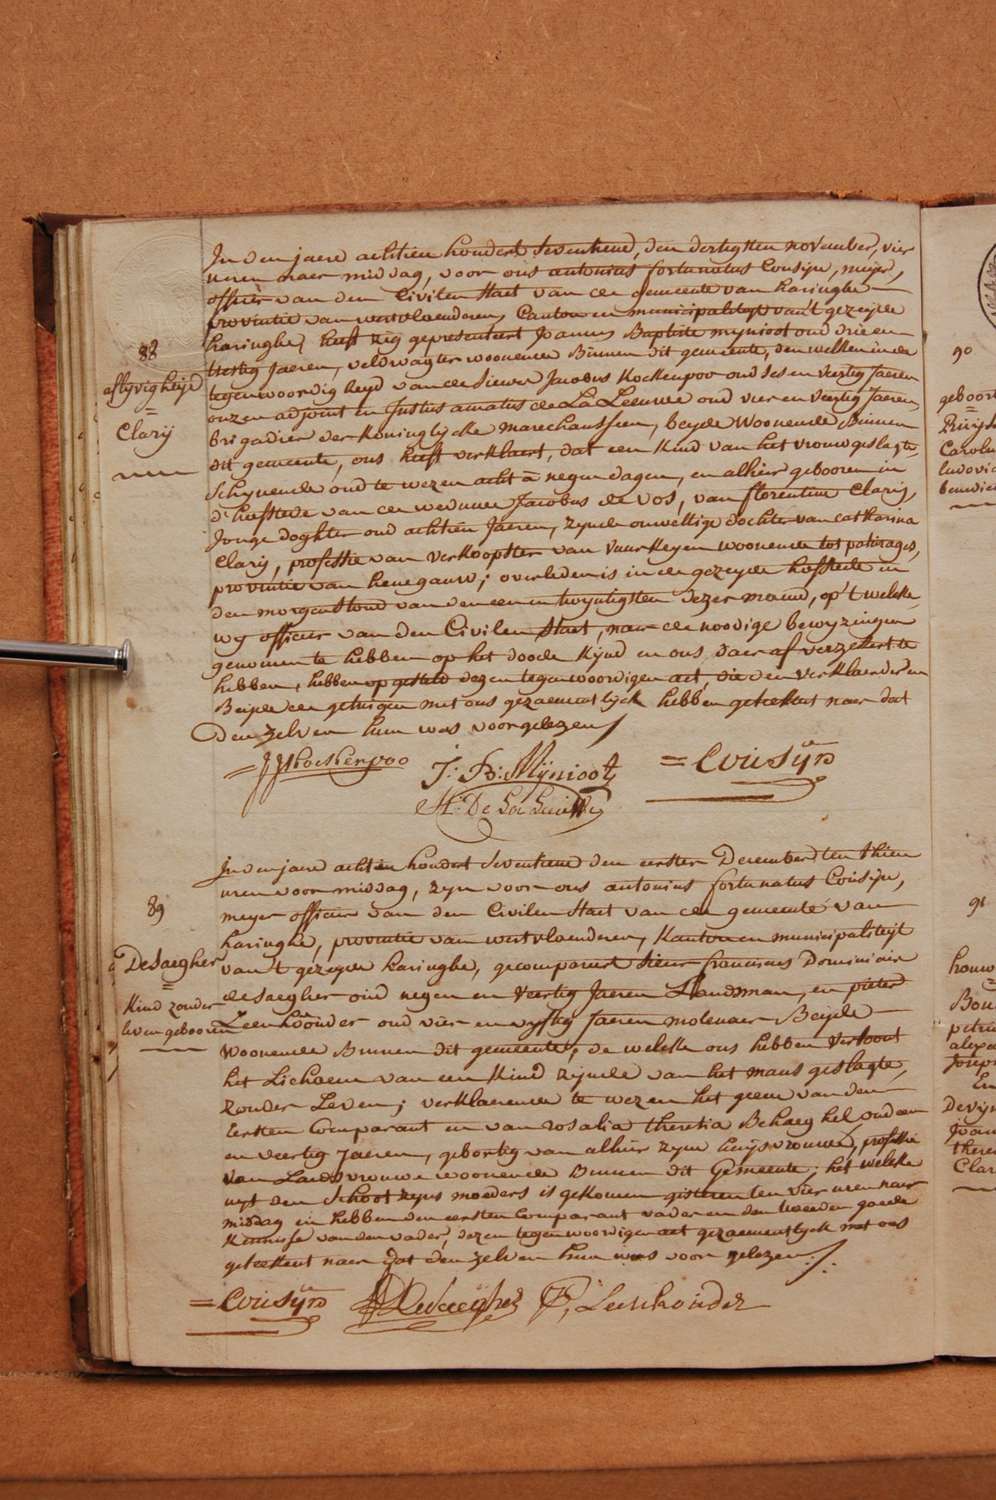 88
aflyvigheijd
=
Clarij
In den jaere achtien hondert seventiend, den dertigsten november, vier
uren naer middag, voor ons antonius fortunatus Cousyn, meyer,
officier van den Civilen Staet van de gemeente van haringhe
provintie van westvlaenderen, Canton en municipaliteyt van't gezeyde
haringhe, heeft zig gepresenteert Joannes Baptiste mynioot oud drie en
dertig Jaeren, veldwagter woonende Binnen dit gemeente, den welken in de
tegenwoordigheyd van de Sieur Jacobus Kockenpoo oud ses en veertig Jaeren
onzen adjoint en Justus amatus de La Leeuwe oud vier en veertig Jaeren,
brigadier der koninglycke marechaussien, beyde Woonende Binnen
dit gemeente, ons heeft verklaert, dat een kind van het vrouwgeslagte,
Schynende oud te wezen acht à negen dagen, en alhier gebooren in
d'hofstede van de weduwe Jacobus de vos, van florentine Clarij,
Jonge doghter oud achtien Jaeren, zynde onwettige dochter van Catharina
Clarij, professie van verkoopster van vuurkeyen woonende tot paturages,
provintie van henegauw; overleden is in de gezeyde hofstede in
den morgenstond van den een en twyntigsten dezer maend, op't welcke
wy officier van den Civilen Staet, naer de noodige bewyzingen
genomen te hebben op het doode Kynd en ons daer af verzekert te
hebben, hebben op gesteld dezen tegenwoordigen act, die den verklaerder en
Beyde de getuigen met ons gezaementlyck hebben geteekent naer dat
den zelven hun was voorgelezen/
= JJ Kockenpoo J: B: Mijnioot = Cousijn
A: De La Leeuwe
89
DeSaegher
=
Kind zonder
leven gebooren
In den jaere achtien hondert seventiend den eersten December ten thien
uren voor middag, zyn voor ons antonius fortunatus Cousyn,
meyer officier van den Civilen Staet van de gemeente van
haringhe, provintie van westvlaenderen, Kanton en municipaliteyt
van't gezeyde haringhe, gecompareert Sieur franciscus Dominicus
desaegher oud negen en veertig Jaeren Landsman, en pieter
Leenhouder oud vier en vyftig Jaeren molenaer Beyde
woonende Binnen dit gemeente, de welcke ons hebben verthoont
het Lichaem van een Kind zijnde van het mans geslagte,
zonder Leven; verklaerende te wezen het geen van den
Eersten Comparant en van rosalia theresia Behaeghel oud een
en veertig jaeren, gebortig van alhier zyne huysvrouwe, professie
van Landsvrouwe woonende Binnen dit Gemeente; het welcke
uyt den Schoot zyns moeders is gekomen gisteren ten vier uren naer
middag en hebben den eersten Comparant vader en den tweeden goede
Kennisse van den vader, dezen tegenwoordigen act gezaementlyck met ons
geteekent naer dat den zelven hun was voor gelezen/.
= Cousijn FD Desaegher P, Leenhouder
90
geboort
=
Carolu
ludovic
91
trouw
Bou
petru
alexa
En
Devijn
Joan
there
Clar